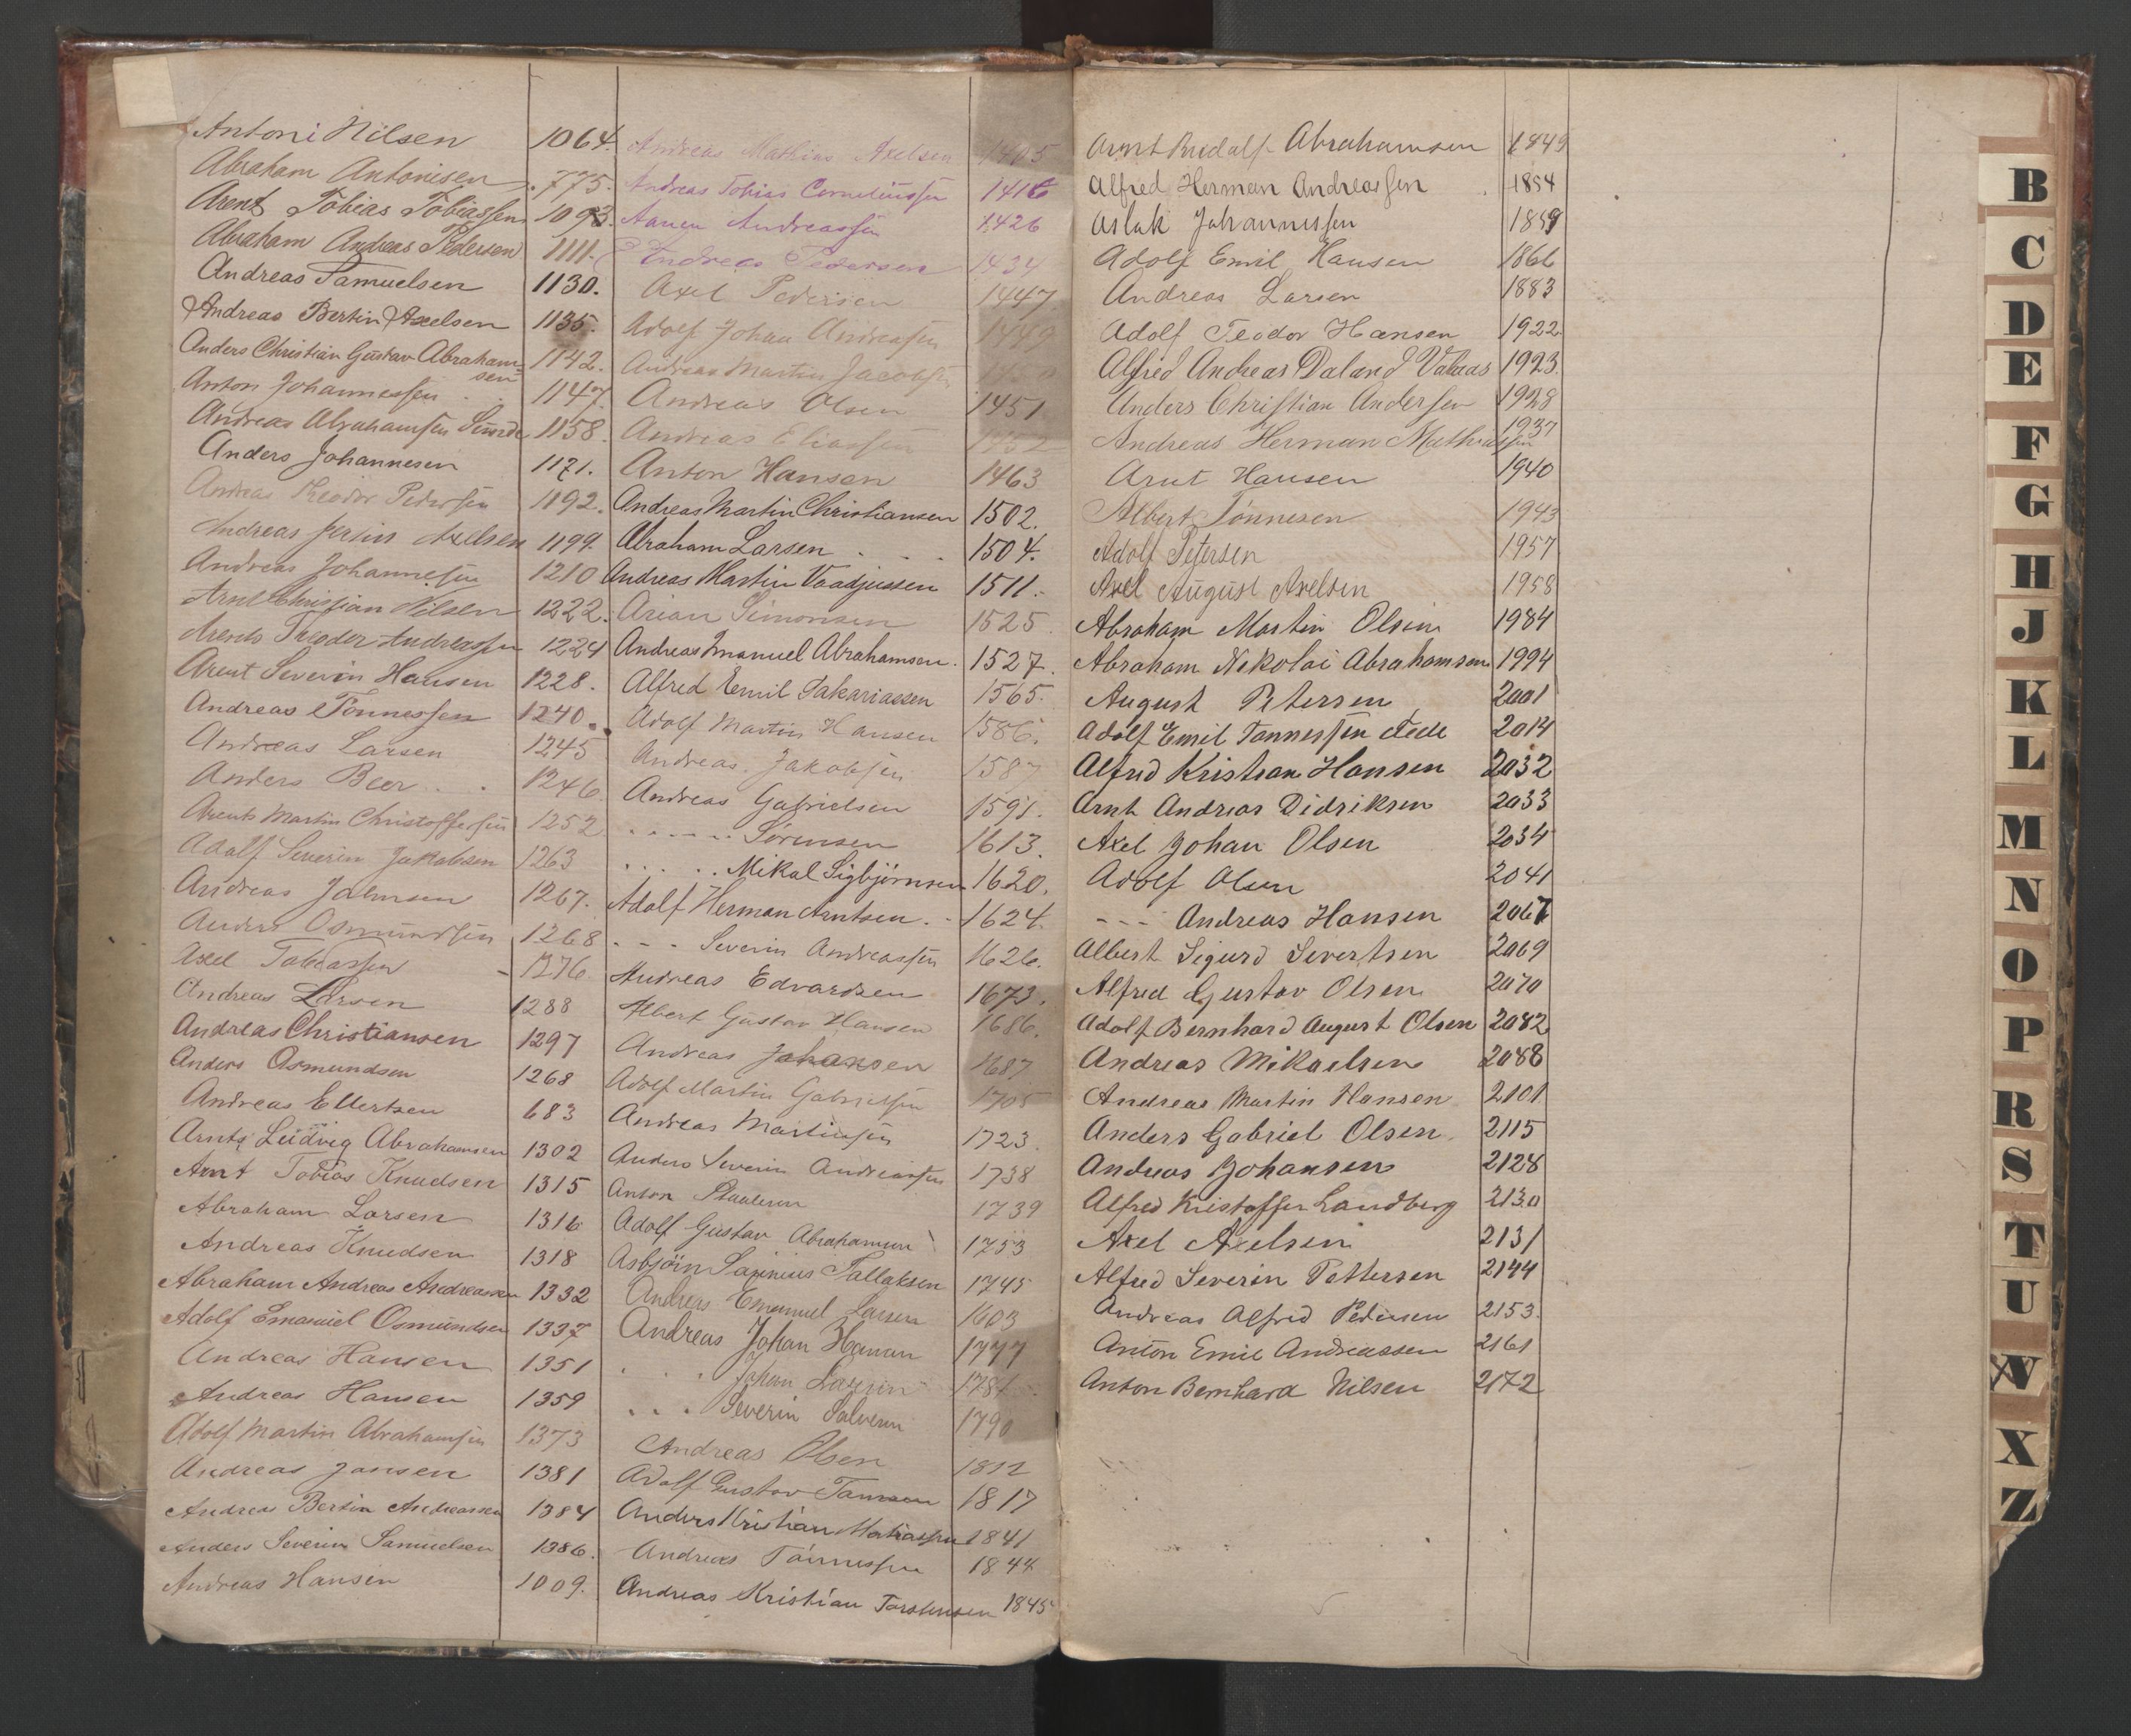 Antoni Nilsen 1064.
Abraham Antonisen 775.
Arent Tobias Tobiassen 1093.
Abraham Andreas Pedersen 1111.
Andreas Samuelsen 1130.
Andreas Bertin Axelsen 1135.
Anders Christian Gustav Abraham-
sen 1142.
Anton Johannessen 1147.
Andreas Abrahamsen 1158.
Anders Johannesen 1171.
Andreas Theodor Pedersen 1192.
Andreas Axelsen 1199.
Andreas Johannesen 1210
Arnt Christian Nilsen 1222.
Arents Theoder Andreassen 1224
Arent Severin Hansen 1228.
Andreas Tönnessen 1240.
Andreas Larsen 1245
Anders Beer 1246
Arents Martin Christoffersen 1252
Adolf Severin Jakobsen 1263
Andreas Jahnsen 1267.
Anders Osmundsen 1268
Axel Tobiassen 1276
Andreas Larsen 1288
Andreas Christiansen 1297
Anders Osmundsen 1268
Andreas Ellertsen 683
Arnts Ludvig Abrahamsen 1302
Arnt Tobias Knudsen 1315
Abraham Larsen 1316
Andreas Knudsen 1318
Abraham Andreas Andreassen 1332
Adolf Emanuel Osmundsen 1337
Andreas Hansen 1351
Andreas Hansen 1359
Adolf Martin Abrahamsen 1373
Andreas Jansen 1381
Andreas Bertin Andreassen 1384
Anders Severin Samuelsen 1386.
Andreas Hansen 1009.
Andreas Mathias Axelsen 1405
Andreas Tobias Corneliussen 1416
Aanen Andreassen 1426
Andreas Pedersen 1434
Axel Pedersen 1447
Adolf Johan Andreasen 1449
Andreas Martin Jacobsen
Andreas Olsen 1451
Andreas Eliassen 1452
Anton Hansen 1463
Andreas Martin Christiansen 1502.
Abraham Larsen 1504.
Andreas Martin Vaadjussen 1511.
Arian Simonsen 1525
Andreas Imanuel Abrahamsen. 1527.
Alfred Emil Sakariassen 1565.
Adolf Martin Hansen 1586.
Andreas Jakobsen 1587
Andreas Gabrielsen 1591.
" Sörensen 1613.
" Mikal Sigbjörnsen 1620.
Adolf Herman Arntsen 1624.
" Severin Andreassen 1626.
Andreas Edvardsen 1673.
Albert Gustav Hansen 1686.
Andreas Johansen 1687
Adolf Martin Gabrielsen 1705
Andreas Martinsen 1723
Anders Severin Andreassen 1738
Anton 1739
Adolf Gustav Abrahamsen 1753
Asbjörn Tallaksen 1745
Andreas Emanuel Larsen 1603
Andreas Johan Hansen 1777
" Johan 178
" Severin Salvesen 1790
Andreas Olsen 1812
Adolf Gustav 1817
Anders Kristian Mathiassen 1841
Andreas Tönnessen 1844
Andreas Kristian Torstensen 1845
Arnt Rudolf Abrahamsen 1849
Alfred Herman Andreassen 1854
Aslak Johannessen 1859
Adolf Emil Hansen 1866
Andreas Larsen 1883
Adolf Teodor Hansen 1922
Alfred Andreas Daland 1923.
Anders Christian Andersen 1928
Andreas Herman Mathiassen 1937
Arnt Hansen 1940
Albert Tönnesen 1943
Adolf Petersen 1957
Axel August Axelsen 1958
Abraham Martin Olsen 1984
Abraham Nekolai Abrahamsen 1994
August Petersen 2001
Adolf Emil Tönnessen 2014
Alfred Kristian Hansen 2032
Arnt Andreas Didriksen 2033
Axel Johan Olsen 2034
Adolf Olsen 2041
--- Andreas Hansen 2067
Albert Sigurd Severtsen 2069
Alfred Gustav Olsen 2070
Adolf Bernhard August Olsen 2082
Andreas Mikaelsen 2088
Andreas Martin Hansen 2101
Anders Gabriel Olsen 2115
Andreas Johansen 2128
Alfred Kristoffer Landberg 2130
Axel Axelsen 2131
Alfred Severin Pettersen 2144
Andreas Alfred Pedersen 2153.
Anton Emil Andreassen 2161
Anton Bernhard Nilsen 2172
B
C
D
E
F
G
H
J
K
L
M
N
O
P
R
S
T
U
W
X
Z